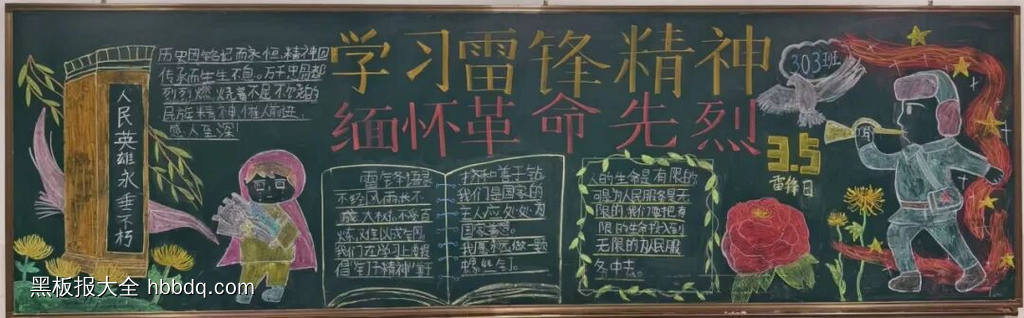 学习雷锋精神
缅怀革命先烈
303班
3.5
雷锋日
人民英雄永垂不朽
历史因铭记而永恒,精神因
传承而生生不息。万千忠骨都
烈烈燃烧着不屈不饶的
民族精神,催人前进,
感人至深!
雷锋语录
不经风雨,长不
成大树,不受百
炼,难以成钢
我们在学习上要提
倡"钉子精神"善于
挤和善于钻
我们是国家的
主人应处处为
国家着想
我愿永远做一颗
螺丝钉。
人的生命是有限的
可是为人民服务是无
限的,我们要把有
限的生命投入到
无限的为人民服
务中去
黑板报大全 hbbdq.com